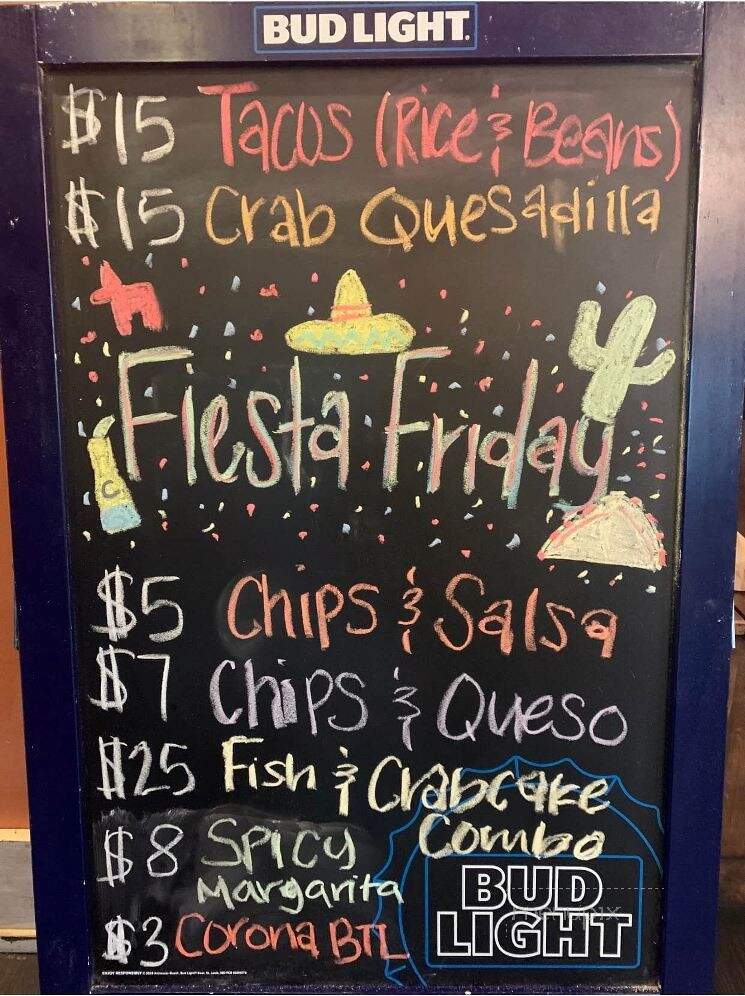 BUD LIGHT.
$15 Tacos (Rice & Beans)
$15 Crab Quesadilla
Fiesta Friday
C
$5 Chips & Salsa
$7 Chips & Queso
$25 Fish & Crabcake
Combo
$8 Spicy
Margarita
$3 Corona BTL
BUD
LIGHT